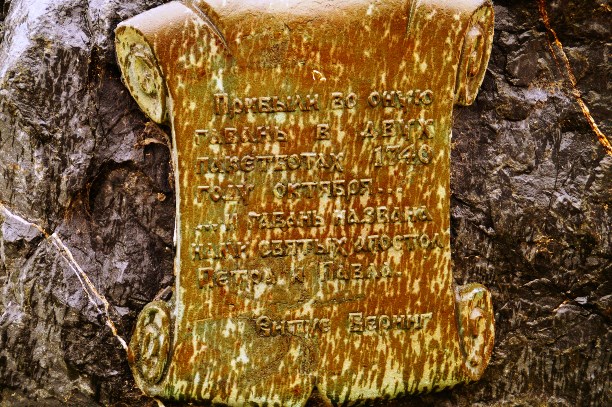 Прибыли во оную
гавань в двух
пакетботах 1740
году октября...
... и гавань названа
нами святых апостол
Петра и Павла.
Витус Беринг